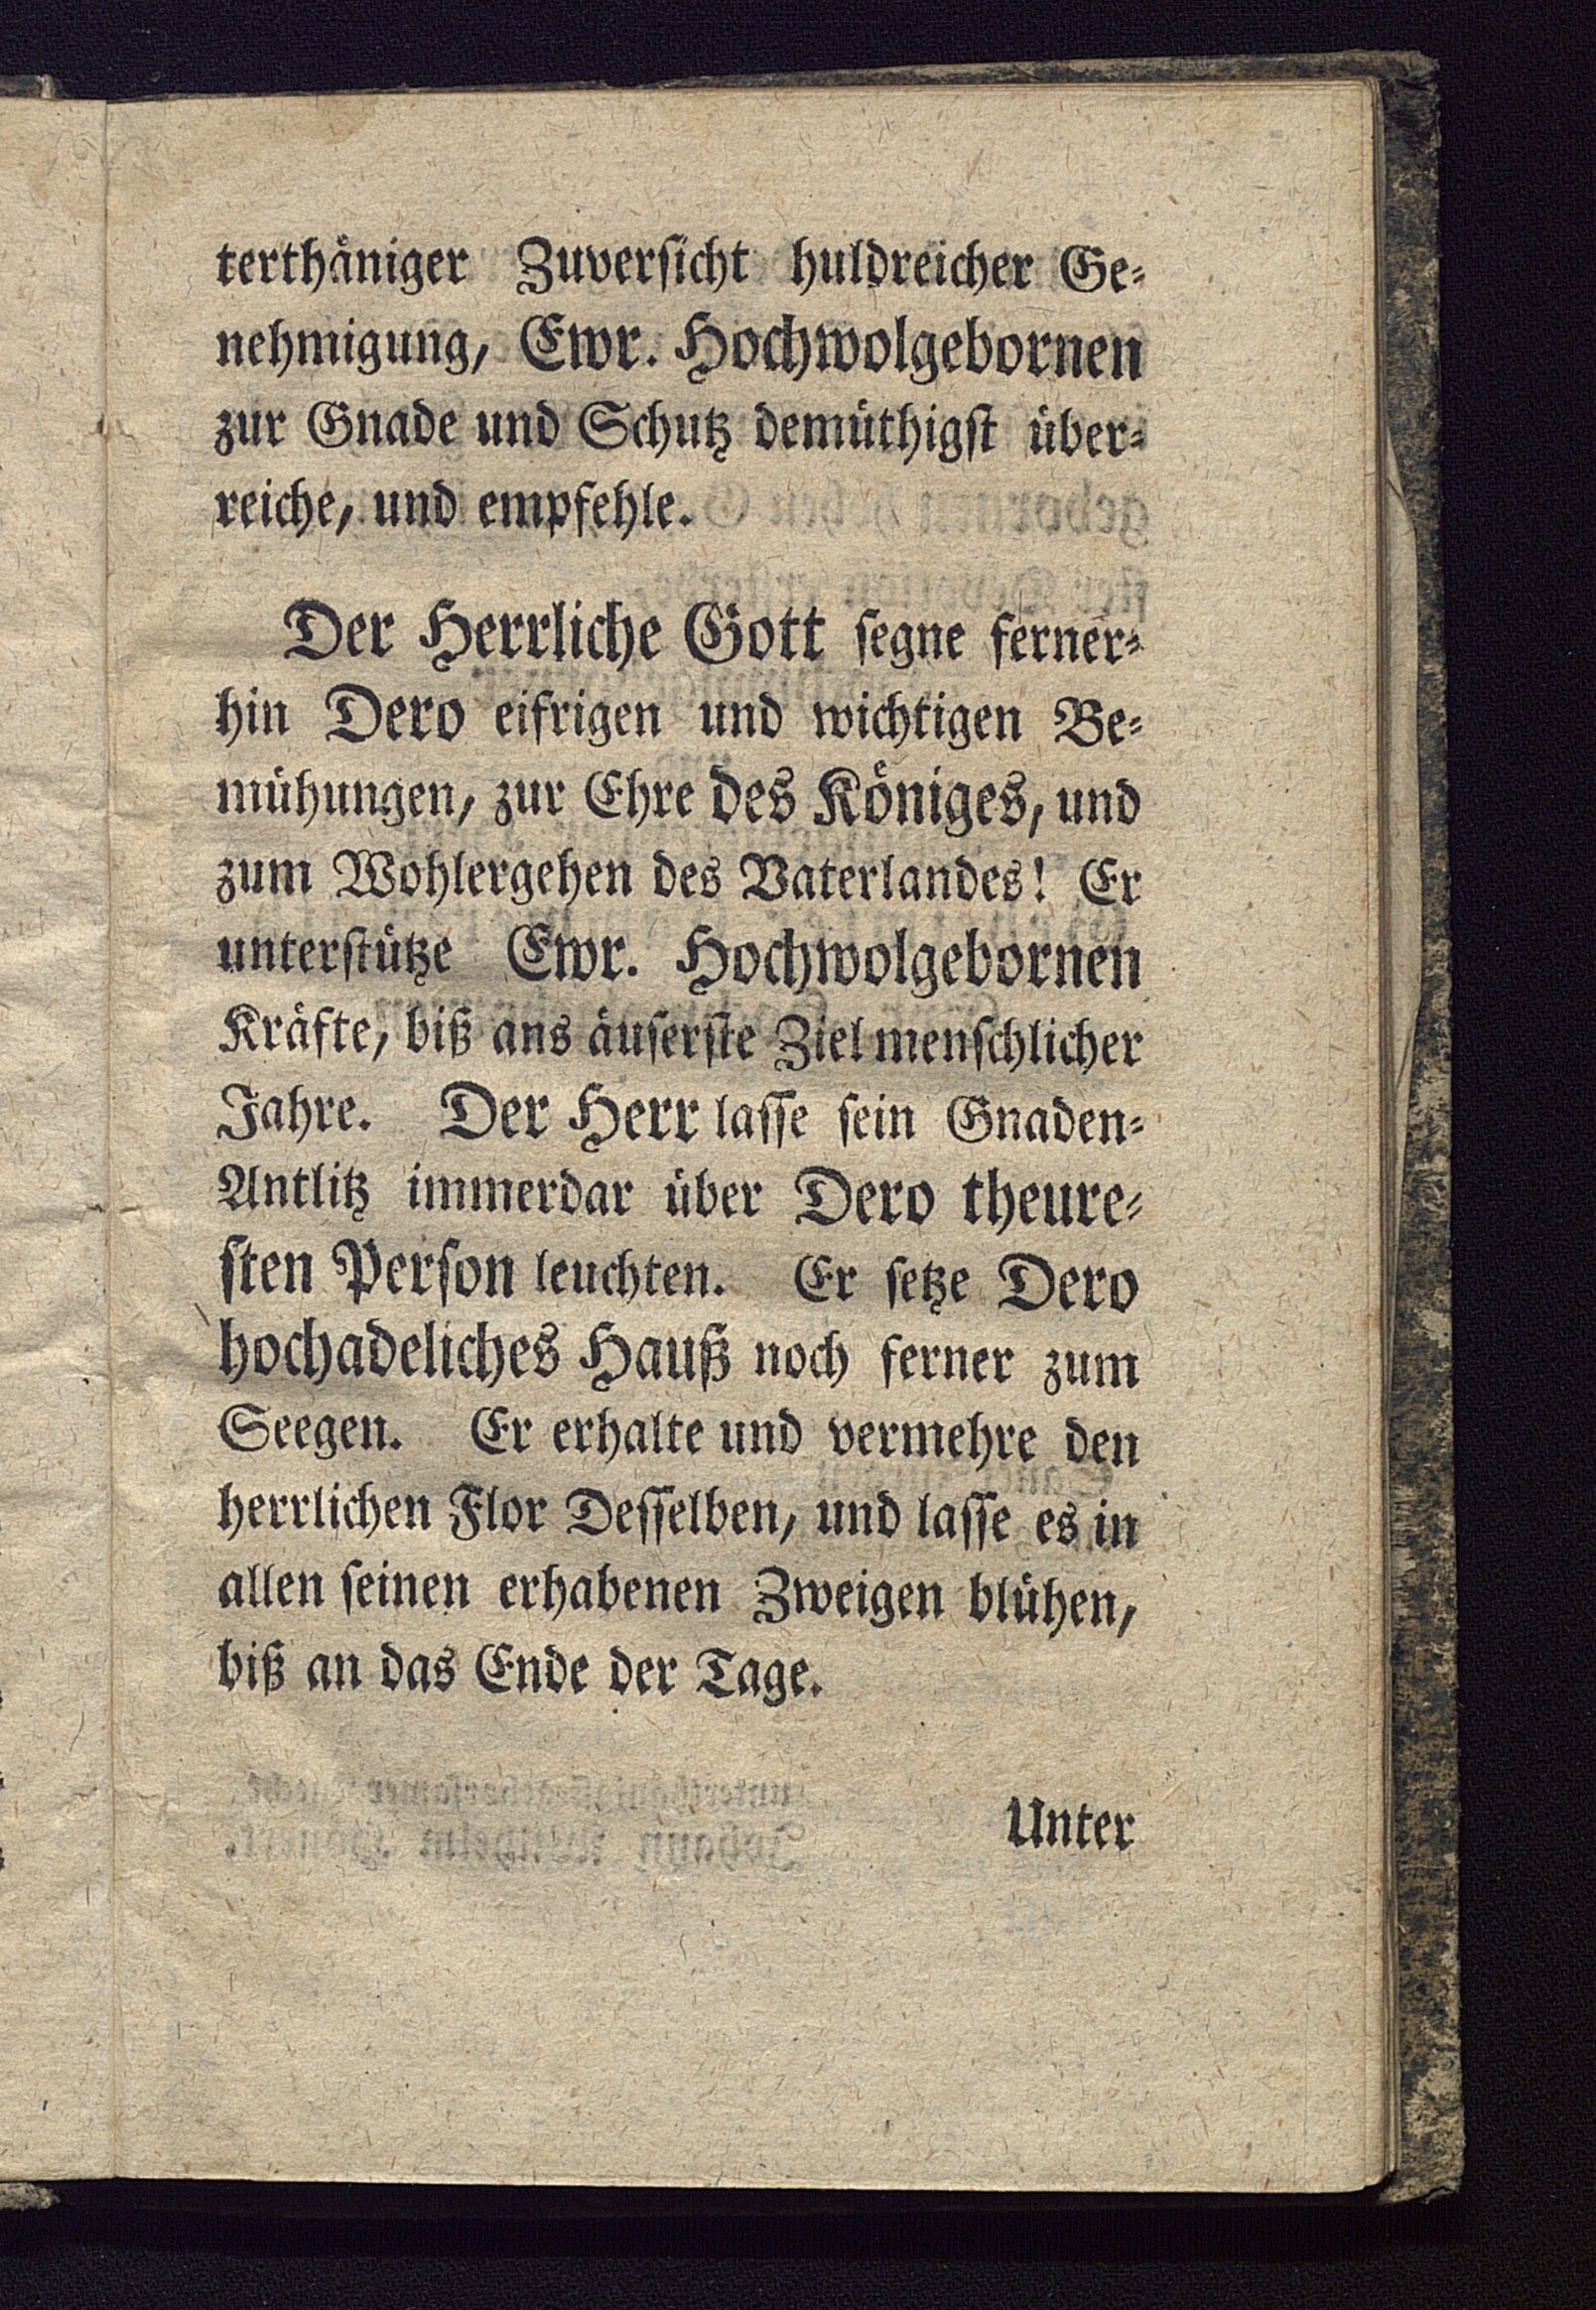 terthäniger Zuverſicht huldreicher Ge⸗
nehmigung, Ewr. Hochwolgebornen
zur Gnade und Schutz demüthigſt über⸗
reiche, und empfehle.
Der Herrliche Gott ſegne ferner⸗
hin Dero eifrigen und wichtigen Be⸗
mühungen, zur Ehre des Königes, und
zum Wohlergehen des Vaterlandes! Er
unterſtütze Ewr. Hochwolgebornen
Kräfte, biß ans äuſerſte Ziel menſchlicher
Jahre. Der Herr laſſe ſein Gnaden⸗
Antlitz immerdar über Dero theure⸗
ſten Perſon leuchten. Er ſetze Dero
hochadeliches Hauß noch ferner zum
Seegen. Er erhalte und vermehre den
herrlichen Flor Deſſelben, und laſſe es in
allen ſeinen erhabenen Zweigen blühen,
biß an das Ende der Tage.
Unter